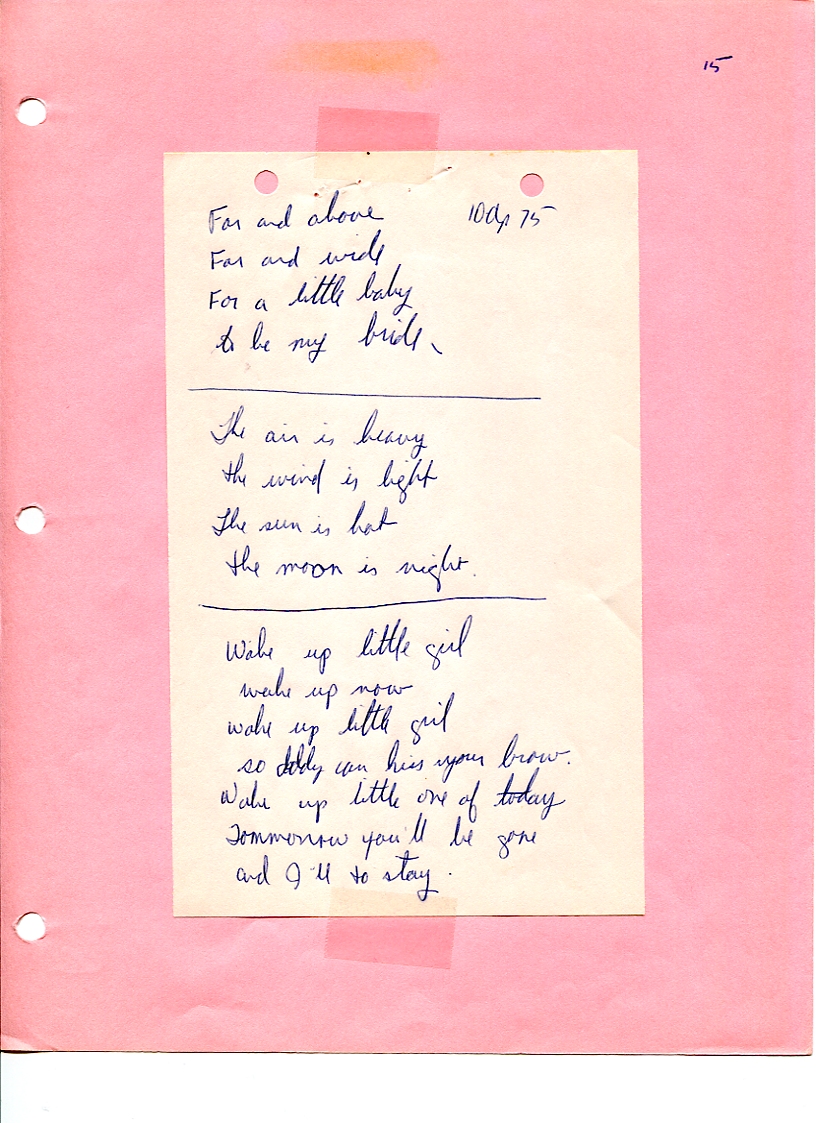 15
For and above 10 Ap 75
For and wide
For a little baby
to be my bride
The air is heavy
the wind is light
The sun is hot
the moon is night.
Wake up little girl
wake up now
wake up little girl
so daddy can kiss your brow.
Wake up little one of today
Tommorrow you'll be gone
and I'll to stay.